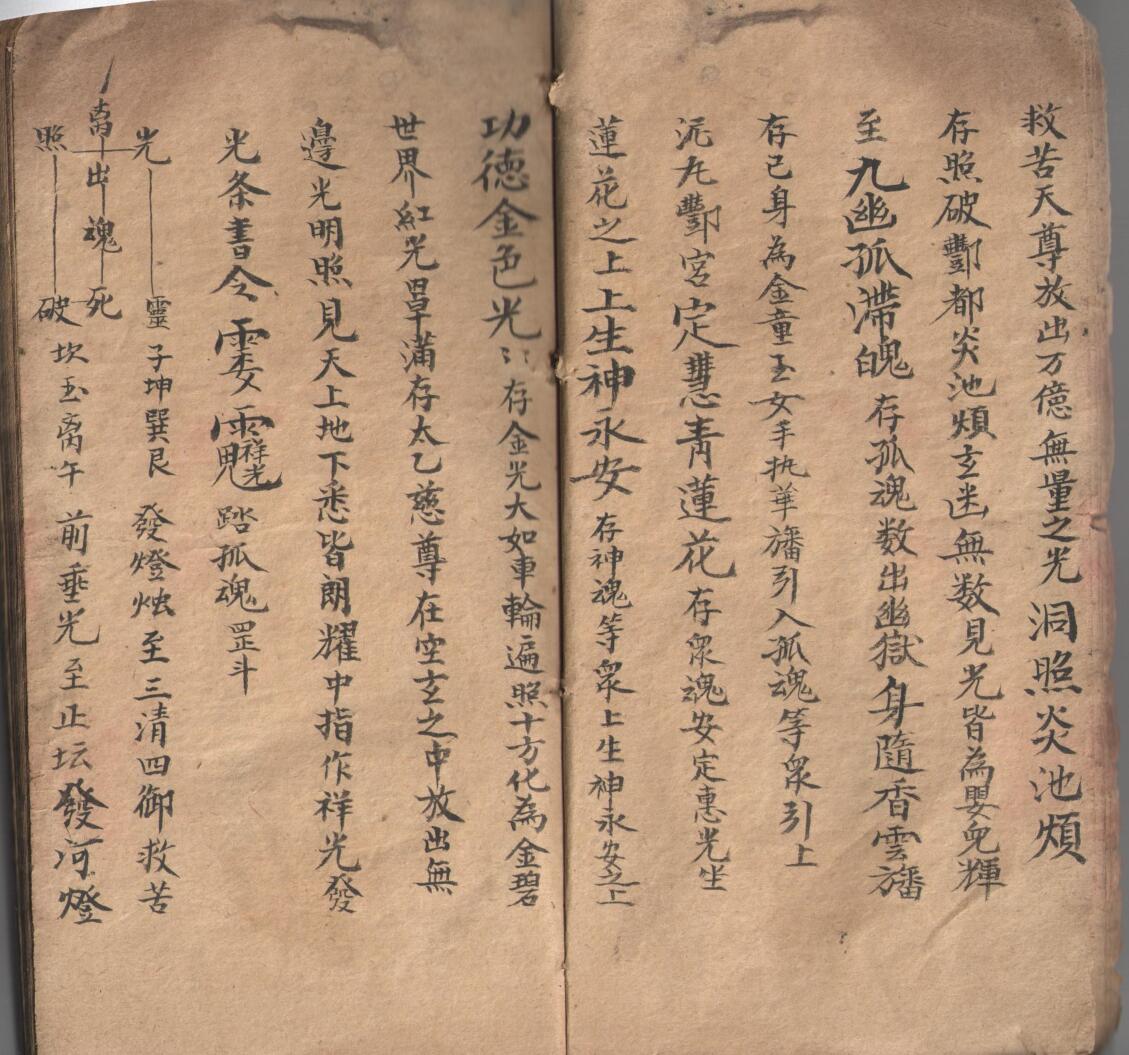 救苦天尊放出万億無量之光 洞照炎池煩
存照破酆都炎池煩玄幽無数見光皆為嬰兒輝
至九幽孤滯魄 存孤魂数出幽獄身隨香雲旛
存已身為金童玉女手执華旛引入孤魂等衆引上
泥丸酆宮定慧青蓮花 存衆魂安定惠光坐
蓮花之上上生神永安 存神魂等衆上生神永安之上
功德金色光〻 存金光大如車輪遍照十方化為金碧
世界紅光罩滿存太乙慈尊在空玄之中放出無
邊光明照見天上地下悉皆朗耀中指作祥光發
光条書令 祥光 踏孤魂罡斗
光 靈 子坤巽艮 發燈烛至三清四御救苦
离出魂死
照 破 坎玉离午 前垂光至止坛發河燈